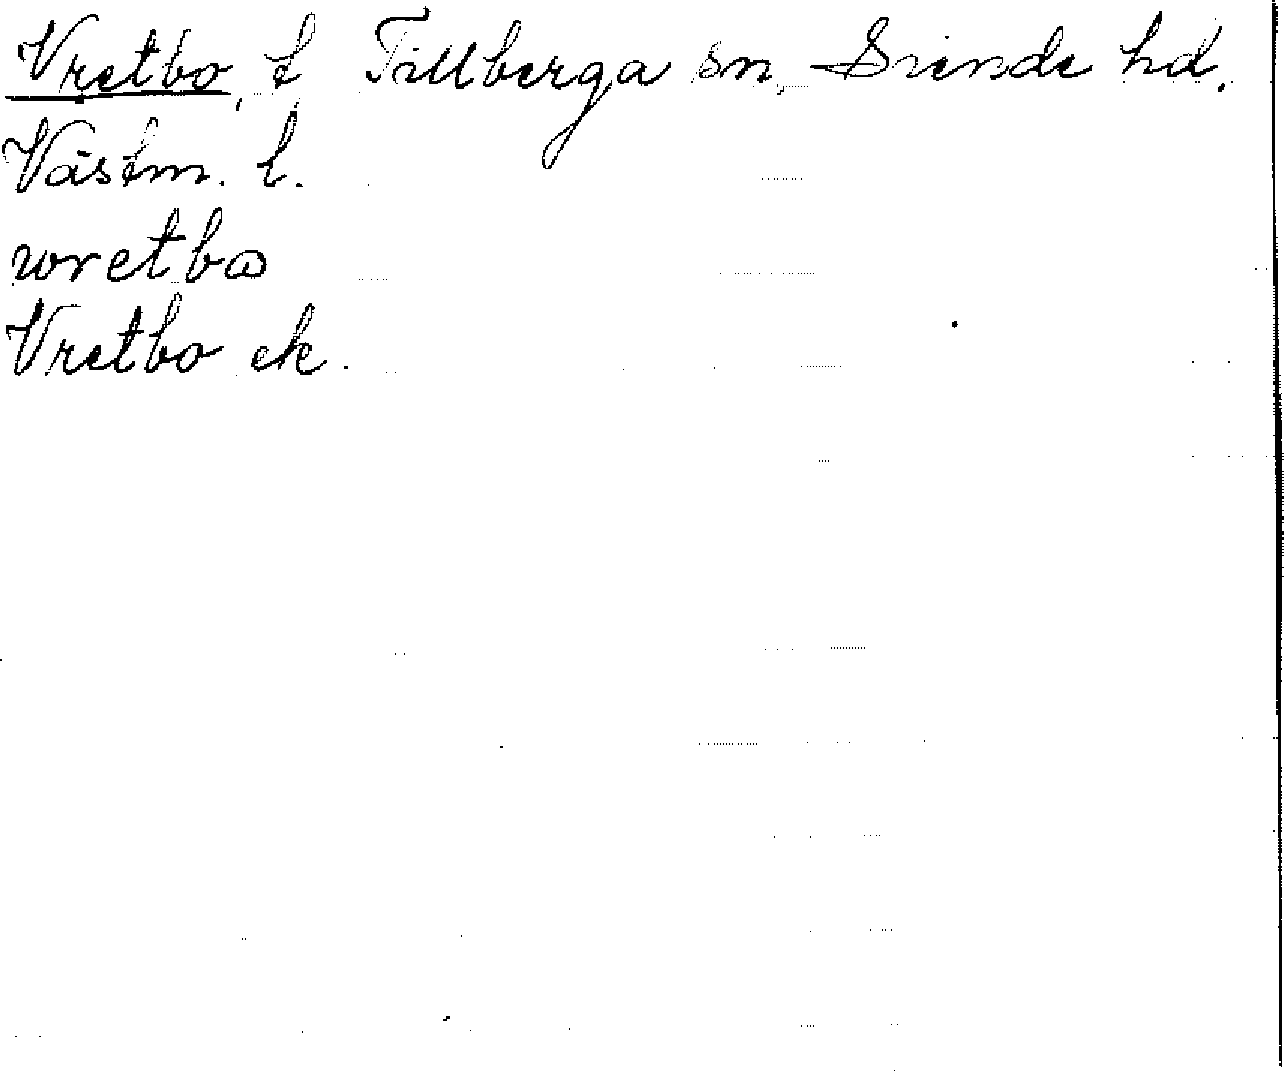 Vretbo, t Tillberga sn, Siende hd.
Västm. l.
wretbɷ
Vretbo ek.